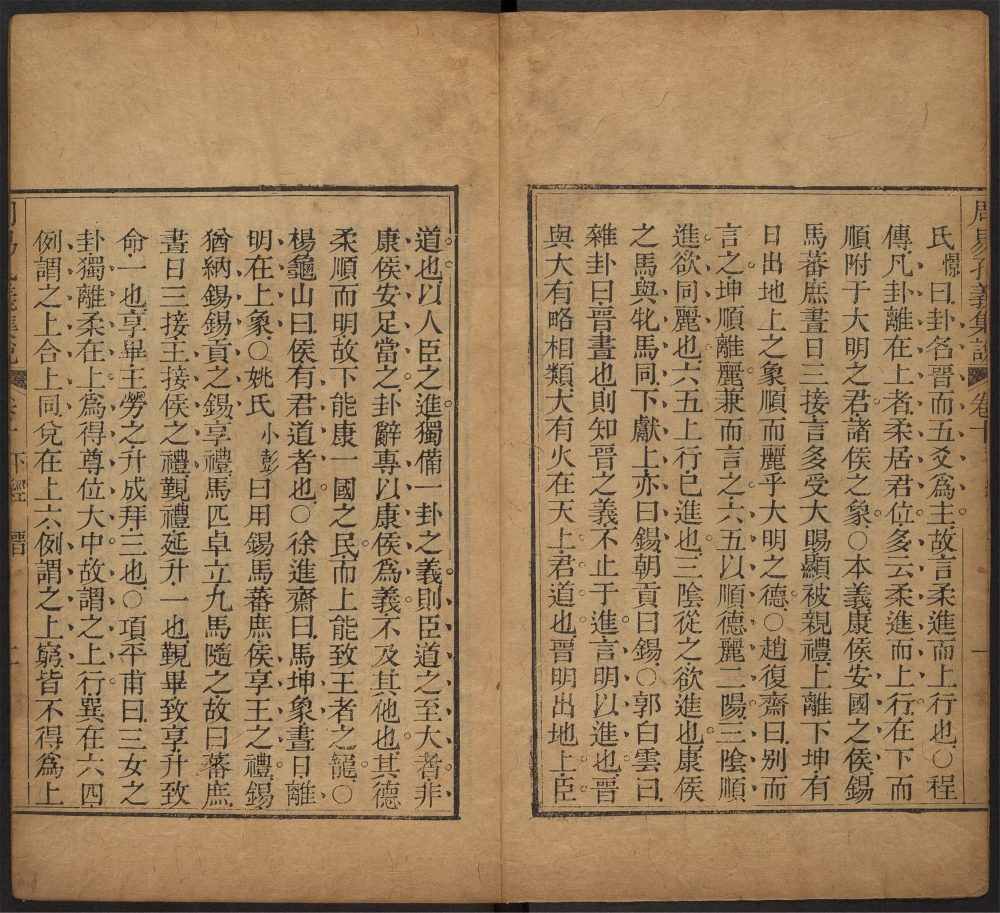 周易孔義集說 卷十
氏憬曰卦名晉而五爻爲主故言柔進而上行也○程
傳凡卦離在上者柔居君位多云柔進而上行在下而
順附于大明之君諸侯之象○本義康侯安國之侯錫
馬蕃庶晝日三接言多受大賜顯被親禮上離下坤有
日出地上之象順而麗乎大明之德○趙復齋曰别而
言之坤順離麗兼而言之六五以順德麗二陽三陰順
進欲同麗也六五上行已進也三陰從之欲進也康侯
之馬與牝馬同下獻上亦曰錫朝貢曰錫○郭白雲曰
雜卦曰晉晝也則知晉之義不止于進言明以進也晉
與大有略相類大有火在天上君道也晉明出地上臣
一
道也以人臣之進獨備一卦之義則臣道之至大者非
康侯安足當之卦辭專以康侯爲義不及其他也其德
柔順而明故下能康一國之民而上能致王者之寵○
楊龜山曰侯有君道者也○徐進齋曰馬坤象晝日離
明在上象○姚氏小彭曰用錫馬蕃庶侯享王之禮錫
猶納錫錫貢之錫享禮馬匹卓立九馬隨之故曰蕃庶
晝日三接王接侯之禮覲禮延升一也覲畢致享升致
命一也享畢王勞之升成拜三也○項平甫曰三女之
卦獨離柔在上爲得尊位大中故謂之上行巽在六四
例謂之上合上同兌在上六例謂之上窮皆不得爲上
下經 晉 二